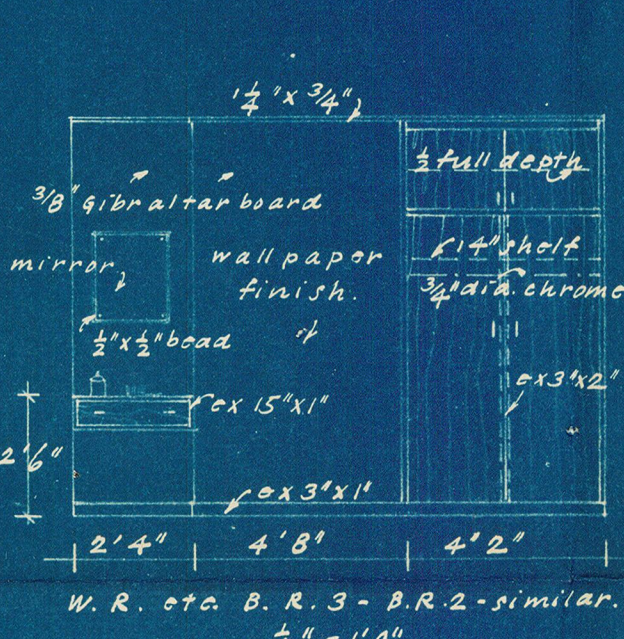 1 1/4" x 3/4"
1/2 full depth
3/8" Gibraltar board
14" shelf
wall paper
finish.
mirror
3/4" dia. chrome
1/2" x 1/2" bead
ex 3" x 2"
ex 15" x 1"
2'6"
ex 3" x 1"
2'4" 4'8" 4'2"
W. R. etc. B. R. 3 - B.R. 2 - similar.